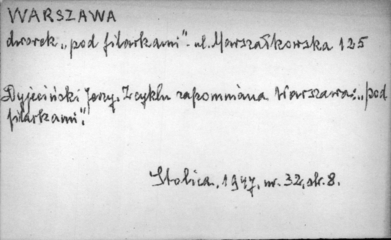 WARSZAWA
dworek „pod filarkami”. ul. Marszałkowska 125
Dyjeciński Jerzy. Z cyklu zapomniana Warszawa: „pod
filarkami”.
Stolica, 1947, nr. 32, str. 8.